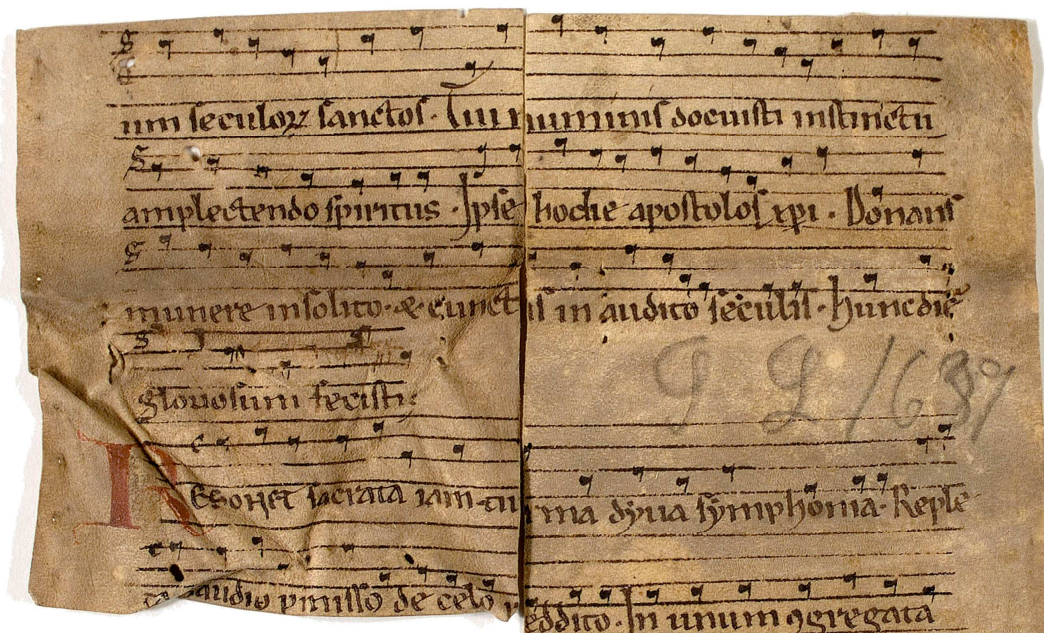 um seculoꝝ sanctos. Tui numinis docuisti instinctu
amplectendo spiritus. Ipse hodie apostolos xpi. Donans
munere insolito. & cunctis inaudito seculis. hunc diē
gloriosum fecisti.
Resonet sacrata iam turma dyua symphonia. Reple
ta gaudio pmisso de celo reddito. In unum ꝯgregata
P L 1639